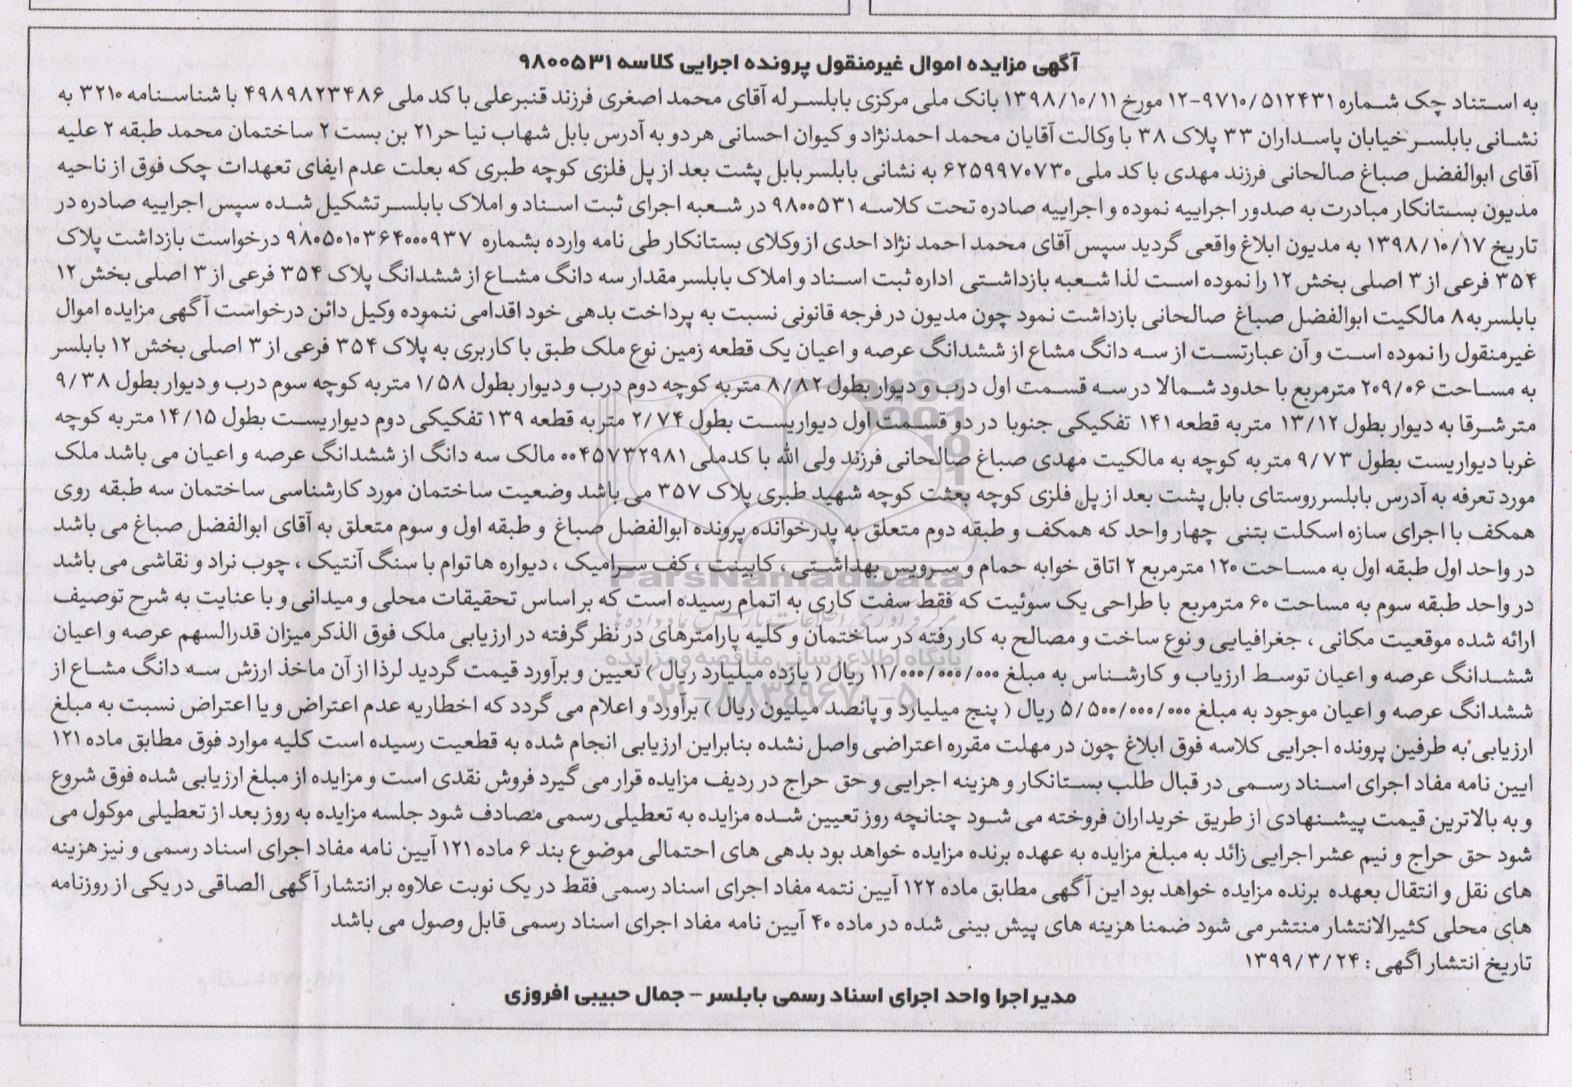 آگهی مزایده اموال غیرمنقول پرونده اجرایی کلاسه ۹۸۰۰۵۳۱
به استناد چک شماره ۹۷۱۰/۵۱۲۴۳۱-۱۲ مورخ ۱۳۹۸/۱۰/۱۱ بانک ملی مرکزی بابلسر له آقای محمد اصغری فرزند قنبرعلی با کد ملی ۴۹۸۹۸۲۳۴۸۶ با شناسنامه ۳۲۱۰ به
نشانی بابلسر خیابان پاسداران ۳۳ پلاک ۳۸ با وکالت آقایان محمد احمدنژاد و کیوان احسانی هر دو به آدرس بابل شهاب نیا حر۲۱ بن بست ۲ ساختمان محمد طبقه ۲ علیه
آقای ابوالفضل صباغ صالحانی فرزند مهدی با کد ملی ۶۲۵۹۹۷۰۷۳۰ به نشانی بابلسر بابل پشت بعد از پل فلزی کوچه طبری که بعلت عدم ایفای تعهدات چک فوق از ناحیه
مدیون بستانکار مبادرت به صدور اجراییه نموده و اجراییه صادره تحت کلاسه ۹۸۰۰۵۳۱ در شعبه اجرای ثبت اسناد و املاک بابلسر تشکیل شده سپس اجراییه صادره در
تاریخ ۱۳۹۸/۱۰/۱۷ به مدیون ابلاغ واقعی گردید سپس آقای محمد احمد نژاد احدی از وکلای بستانکار طی نامه وارده بشماره ۹۸۰۵۰۱۰۳۶۴۰۰۰۹۳۷ درخواست بازداشت پلاک
۳۵۴ فرعی از ۳ اصلی بخش ۱۲ را نموده است لذا شعبه بازداشتی اداره ثبت اسناد و املاک بابلسر مقدار سه دانگ مشاع از ششدانگ پلاک ۳۵۴ فرعی از ۳ اصلی بخش ۱۲
بابلسر به۸ مالکیت ابوالفضل صباغ صالحانی بازداشت نمود چون مدیون در فرجه قانونی نسبت به پرداخت بدهی خود اقدامی ننموده وکیل دائن درخواست آگهی مزایده اموال
غیرمنقول را نموده است و آن عبارتست از سه دانگ مشاع از ششدانگ عرصه و اعیان یک قطعه زمین نوع ملک طبق با کاربری به پلاک ۳۵۴ فرعی از ۳ اصلی بخش ۱۲ بابلسر
به مساحت ۲۰۹/۰۶ مترمربع با حدود شمالا در سه قسمت اول درب و دیوار بطول ۸/۸۲ متر به کوچه دوم درب و دیوار بطول ۱/۵۸ متر به کوچه سوم درب و دیوار بطول ۹/۳۸
متر شرقا به دیوار بطول ۱۳/۱۲ متر به قطعه ۱۴۱ تفکیکی جنوبا در دو قسمت اول دیواریست بطول ۲/۷۴ متر به قطعه ۱۳۹ تفکیکی دوم دیواریست بطول ۱۴/۱۵ متر به کوچه
غربا دیواریست بطول ۹/۷۳ متر به کوچه به مالکیت مهدی صباغ صالحانی فرزند ولی الله با کدملی ۰۰۴۵۷۳۲۹۸۱ مالک سه دانگ از ششدانگ عرصه و اعیان می باشد ملک
مورد تعرفه به آدرس بابلسر روستای بابل پشت بعد از پل فلزی کوچه بعثت کوچه شهید طبری پلاک ۳۵۷ می باشد وضعیت ساختمان مورد کارشناسی ساختمان سه طبقه روی
همکف با اجرای سازه اسکلت بتنی چهار واحد که همکف و طبقه دوم متعلق به پدرخوانده پرونده ابوالفضل صباغ و طبقه اول و سوم متعلق به آقای ابوالفضل صباغ می باشد
در واحد اول طبقه اول به مساحت ۱۲۰ مترمربع ۲ اتاق خوابه حمام و سرویس بهداشتی ، کابینت ، کف سرامیک ، دیواره ها توام با سنگ آنتیک ، چوب نراد و نقاشی می باشد
در واحد طبقه سوم به مساحت ۶۰ مترمربع با طراحی یک سوئیت که فقط سفت کاری به اتمام رسیده است که بر اساس تحقیقات محلی و میدانی و با عنایت به شرح توصیف
ارائه شده موقعیت مکانی ، جغرافیایی و نوع ساخت و مصالح به کار رفته در ساختمان و کلیه پارامترهای در نظر گرفته در ارزیابی ملک فوق الذکر میزان قدرالسهم عرصه و اعیان
ششدانگ عرصه و اعیان توسط ارزیاب و کارشناس به مبلغ ۱۱/۰۰۰/۰۰۰/۰۰۰ ریال ( یازده میلیارد ریال ) تعیین و برآورد قیمت گردید لرذا از آن ماخذ ارزش سه دانگ مشاع از
ششدانگ عرصه و اعیان موجود به مبلغ ۵/۵۰۰/۰۰۰/۰۰۰ ریال ( پنج میلیارد و پانصد میلیون ریال ) برآورد و اعلام می گردد که اخطاریه عدم اعتراض و یا اعتراض نسبت به مبلغ
ارزیابی به طرفین پرونده اجرایی کلاسه فوق ابلاغ چون در مهلت مقرره اعتراضی واصل نشده بنابراین ارزیابی انجام شده به قطعیت رسیده است کلیه موارد فوق مطابق ماده ۱۲۱
ایین نامه مفاد اجرای اسناد رسمی در قبال طلب بستانکار و هزینه اجرایی و حق حراج در ردیف مزایده قرار می گیرد فروش نقدی است و مزایده از مبلغ ارزیابی شده فوق شروع
و به بالاترین قیمت پیشنهادی از طریق خریداران فروخته می شود چنانچه روز تعیین شده مزایده به تعطیلی رسمی مصادف شود جلسه مزایده به روز بعد از تعطیلی موکول می
شود حق حراج و نیم عشر اجرایی زائد به مبلغ مزایده به عهده برنده مزایده خواهد بود بدهی های احتمالی موضوع بند ۶ ماده ۱۲۱ آیین نامه مفاد اجرای اسناد رسمی و نیز هزینه
های نقل و انتقال بعهده برنده مزایده خواهد بود این آگهی مطابق ماده ۱۲۲ آیین نتمه مفاد اجرای اسناد رسمی فقط در یک نوبت علاوه بر انتشار آگهی الصاقی در یکی از روزنامه
های محلی کثیرالانتشار منتشر می شود ضمنا هزینه های پیش بینی شده در ماده ۴۰ آیین نامه مفاد اجرای اسناد رسمی قابل وصول می باشد
تاریخ انتشار اگهی : ۱۳۹۹/۳/۲۴
مدیر اجرا واحد اجرای اسناد رسمی بابلسر – جمال حبیبی افروزی
ParsNamadData
پایگاه اطلاع رسانی مناقصه و مزایده
۰۲۱-۸۸۳۴۹۶۷۰-۵